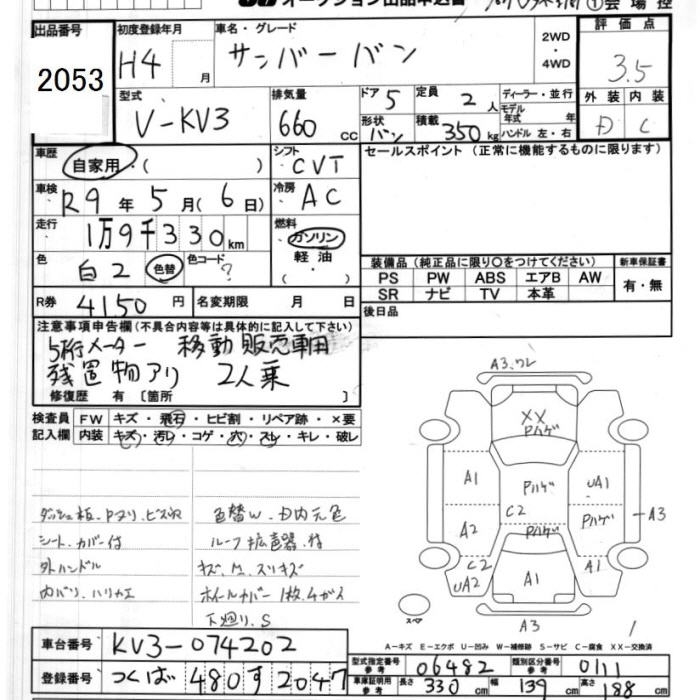 オークション出品申込書 ①会場控
出品番号 初度登録年月 車名・グレード 2WD・4WD 評価点
2053 H4 月 サンバーバン 3.5
型式 排気量 ドア 5 定員 2人 ディーラー・並行 外装 内装
V-KV3 660 cc 形状 バン 積載 350kg モデル年式 年式 ハンドル 左・右 D C
車歴 自家用・( ) シフト CVT セールスポイント(正常に機能するものに限ります)
車検 R9年5月(6日) 冷房 AC
走行 1万9千330km 燃料 ガソリン
軽油
色 白2 色替 色コード ?
装備品(純正品に限り○をつけてください) 新車保証書
PS PW ABS エアB AW 有・無
SR ナビ TV 本革
R券 4150円 名変期限 月 日 後日品
注意事項申告欄(不具合内容等は具体的に記入して下さい)
5桁メーター 移動販売車用
残置物アリ 2人乗
修復歴 有 [箇所 ]
検査員 FW キズ・飛石・ヒビ割・リペア跡・×要
記入欄 内装 キズ・汚レ・コゲ・穴・スレ・キレ・破レ
ダッシュ板、Pヌリ、ビス穴 色替W、D内元色
シート、カバー付 ルーフ拡声器、付
外ハンドル
内バリ、ハリカエ ホイールカバー1枚、4ガス
下廻り、S
A3.ワレ
XX
Pハゲ
A1 Pハゲ UA1
C2
A2 Pハゲ Pハゲ A3
C2
UA2 A1 A2
スペア A3
A－キズ E－エクボ U－凹み W－補修跡 S－サビ C－腐食 XX－交換済
車台番号 KV3-074202
型式指定番号 参考 06482 類別区分番号 参考 0111
登録番号 つくば 480 す 2047
車庫証明用 参考 長さ 330cm 幅 139cm 高さ 188cm